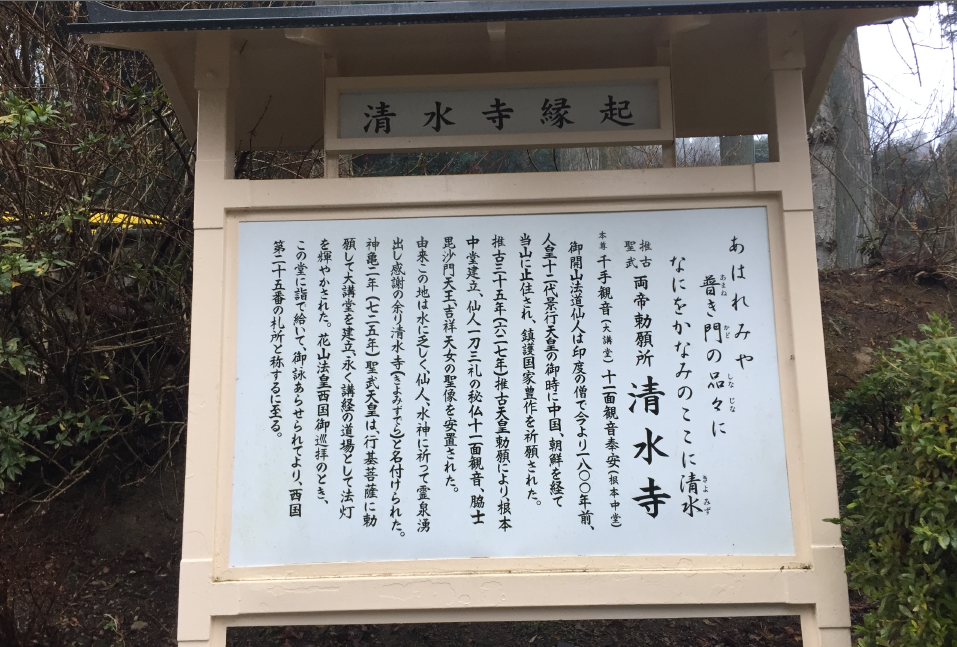 清水寺縁起
あはれみや
普き門の品々に
あまね かど しな じな
なにをかなみのここに清水
きよ みず
推古
聖武
両帝勅願所 清水寺
本尊 千手観音(大講堂)十一面観音奉安(根本中堂)
御開山法道仙人は印度の僧で今より一八〇〇年前、
人皇十二代景行天皇の御時に中国、朝鮮を経て
当山に止住され、鎮護国家豊作を祈願された。
推古三十五年(六二七年)推古天皇勅願により根本
中堂建立、仙人一刀三礼の秘仏十一面観音、脇士
毘沙門天王、吉祥天女の聖像を安置された。
由来この地は水に乏しく仙人、水神に祈って霊泉湧
出し感謝の余り清水寺(きよみずでら)と名付けられた。
神亀二年(七二五年)聖武天皇は、行基菩薩に勅
願して大講堂を建立、永く講経の道場として法灯
を輝やかされた。花山法皇西国御巡拝のとき、
この堂に詣で給いて、御詠あらせられてより、西国
第二十五番の札所と称するに至る。